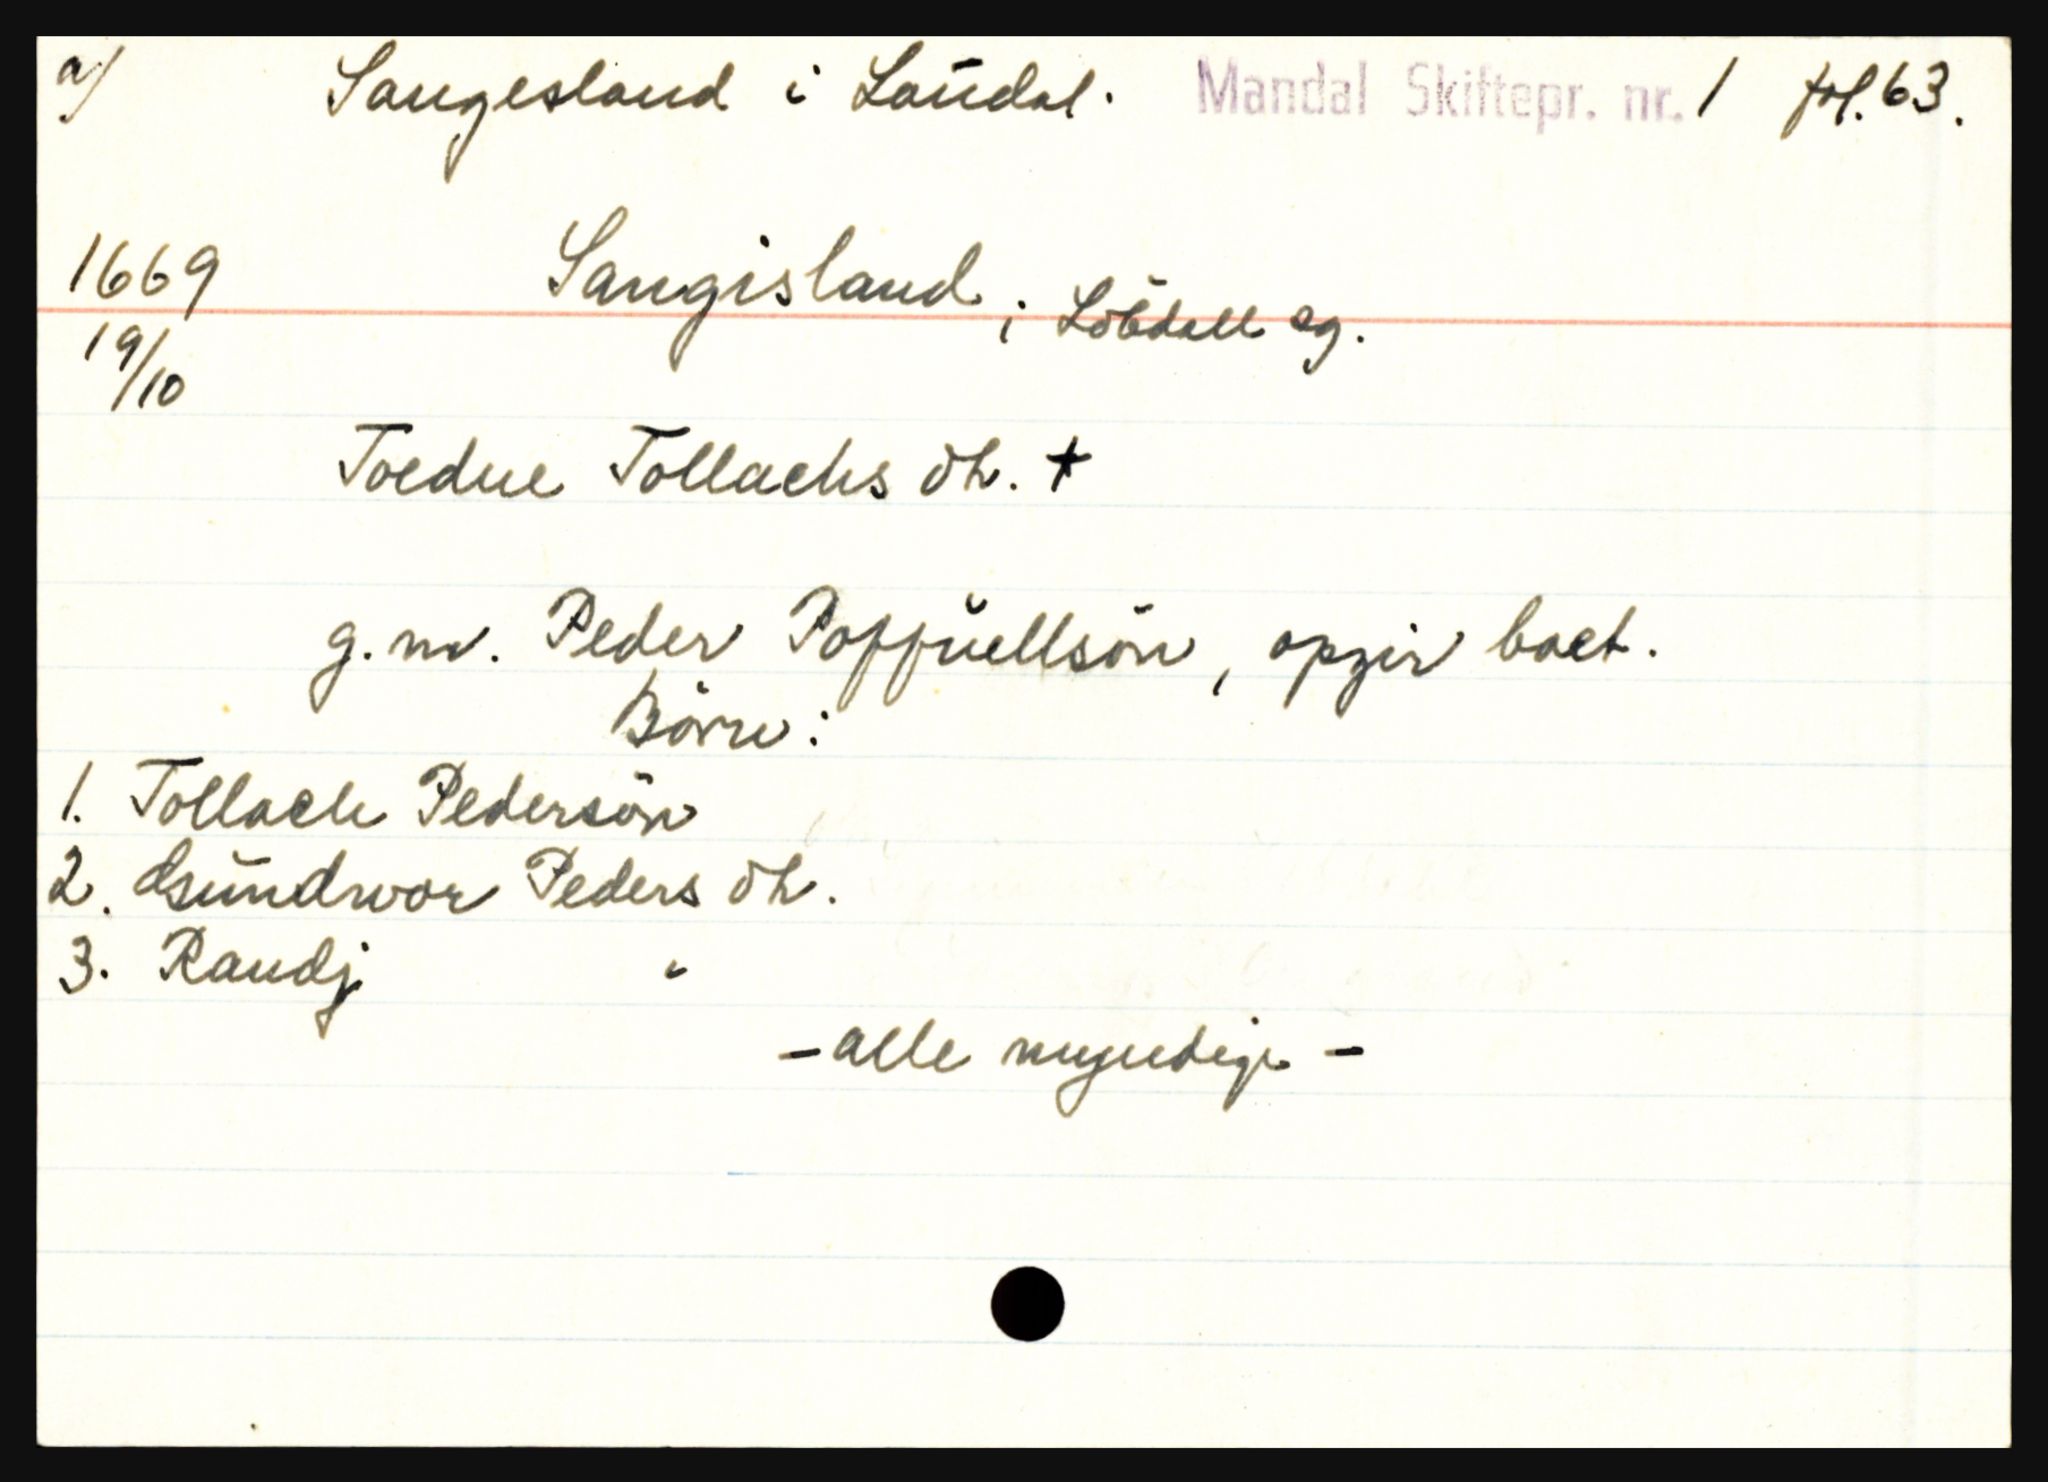 a/ Saugesland i Laudal. Mandal Skiftepr. nr. 1 fol. 63.
1669 Saugisland i Löbdall sg.
19/10
Toedne Tollachs dh. +
g.m. Peder Poffuellsön, opgir boet.
Börn:
1. Tollach Pedersön
2. Gundwor Peders dh.
3. Randj "
- alle myndige -